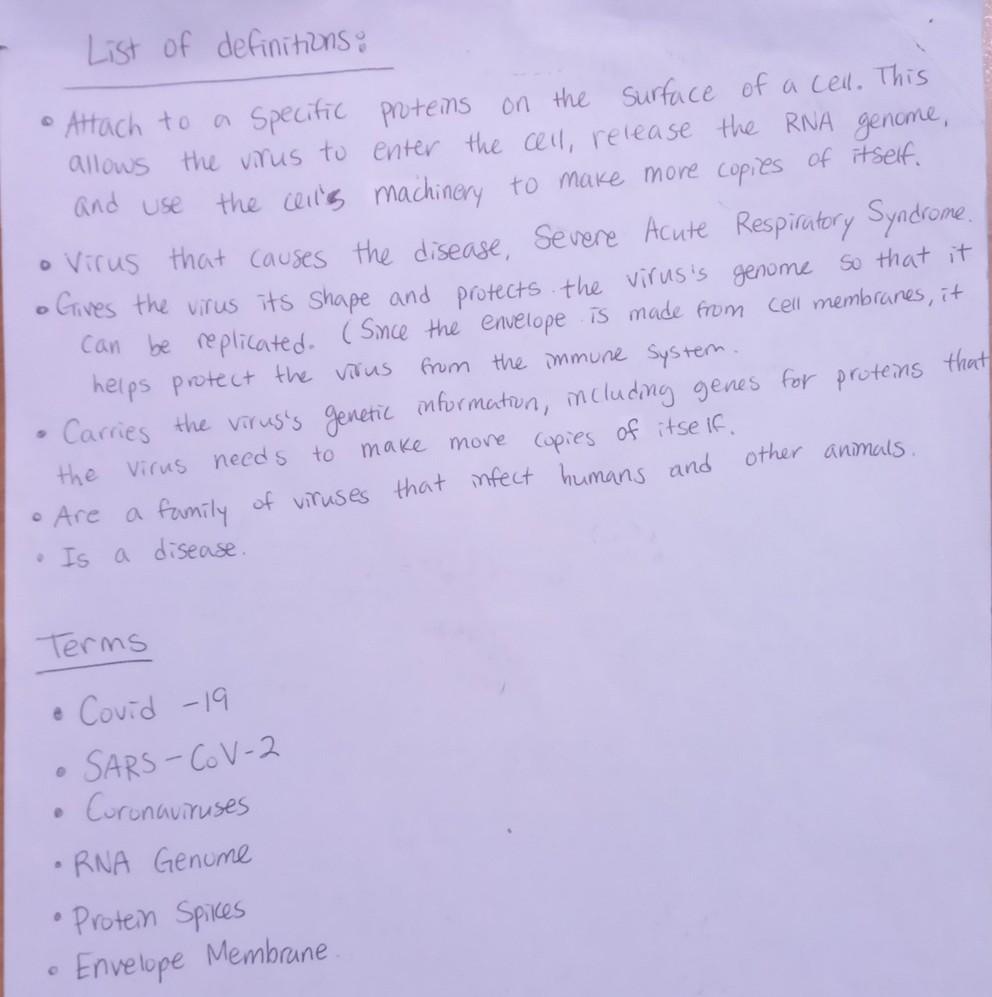 List of definitions:
• Attach to a specific proteins on the surface of a cell. This
allows the virus to enter the cell, release the RNA genome,
and use the cell's machinery to make more copies of itself.
• Virus that causes the disease, Severe Acute Respiratory Syndrome.
• Gives the virus its shape and protects the virus's genome so that it
can be replicated. (Since the envelope is made from cell membranes, it
helps protect the virus from the immune system.
• Carries the virus's genetic information, including genes for proteins that
the virus needs to make more copies of itself.
• Are a family of viruses that infect humans and other animals.
• Is a disease.
Terms
• Covid -19
• SARS-CoV-2
• Coronaviruses
• RNA Genome
• Protein Spikes
• Envelope Membrane.